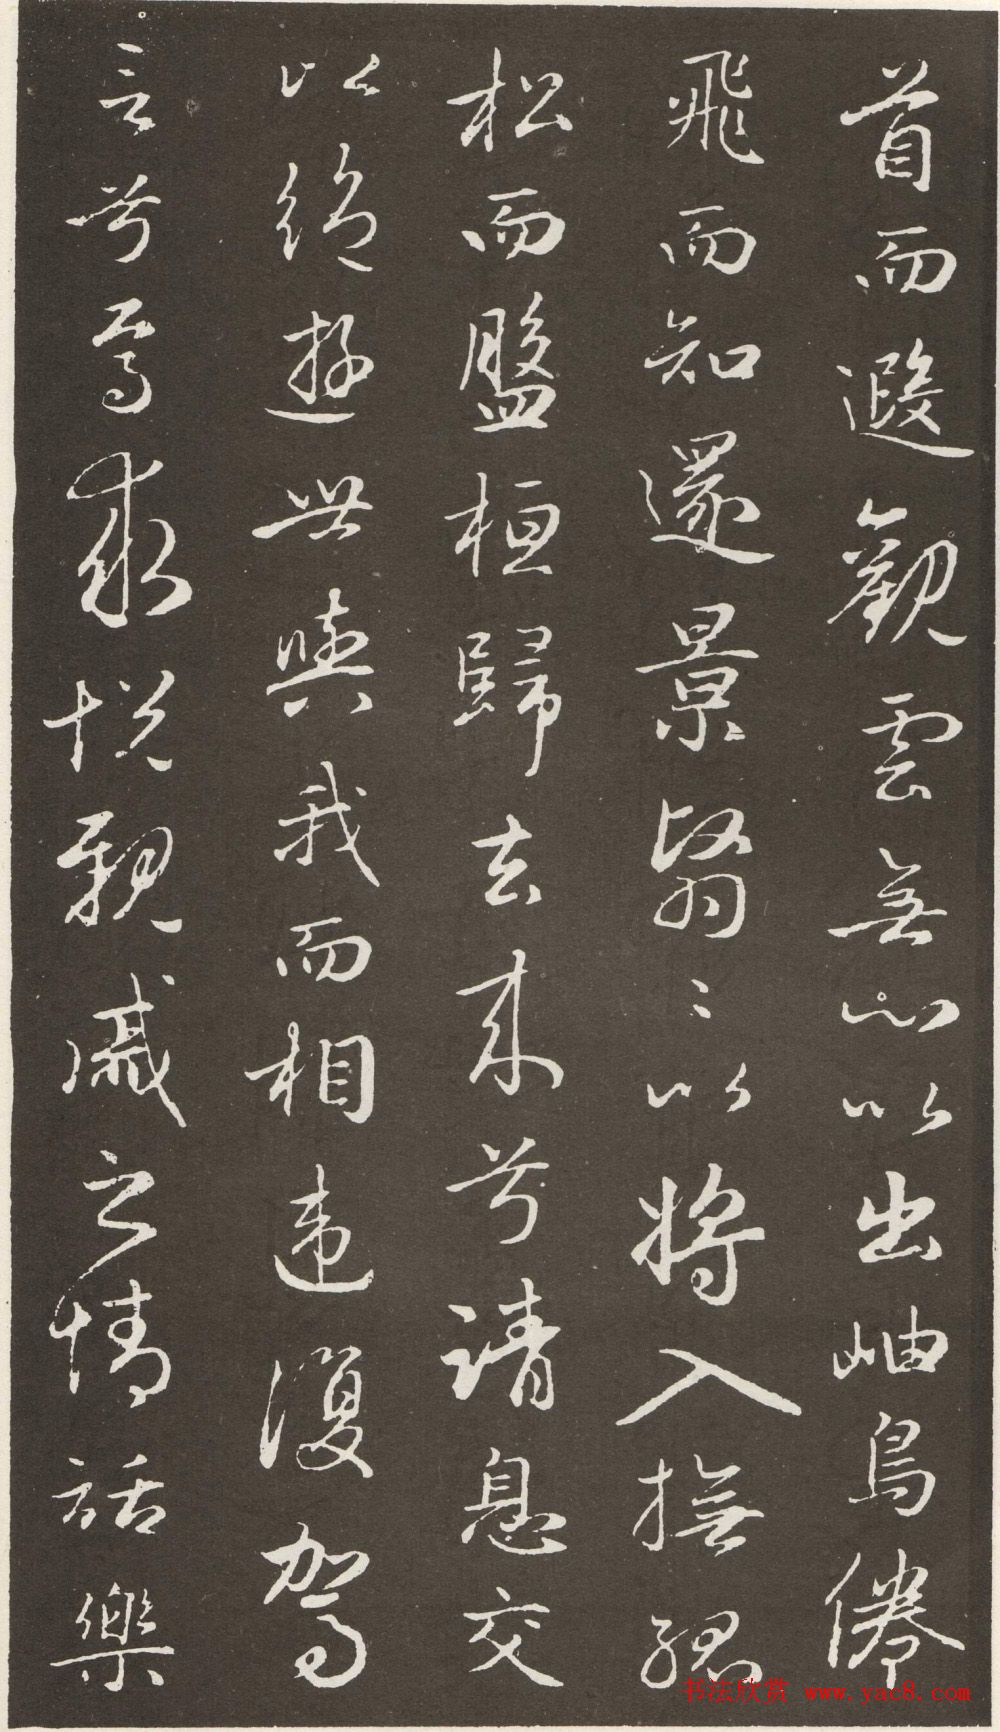 首而遐觀雲無心以出岫鳥倦
飛而知還景翳々以將入撫孤
松而盤桓歸去来兮請息交
以絕遊世與我而相違復駕
言兮焉求悅親戚之情話樂
书法欣赏 www.yac8.com